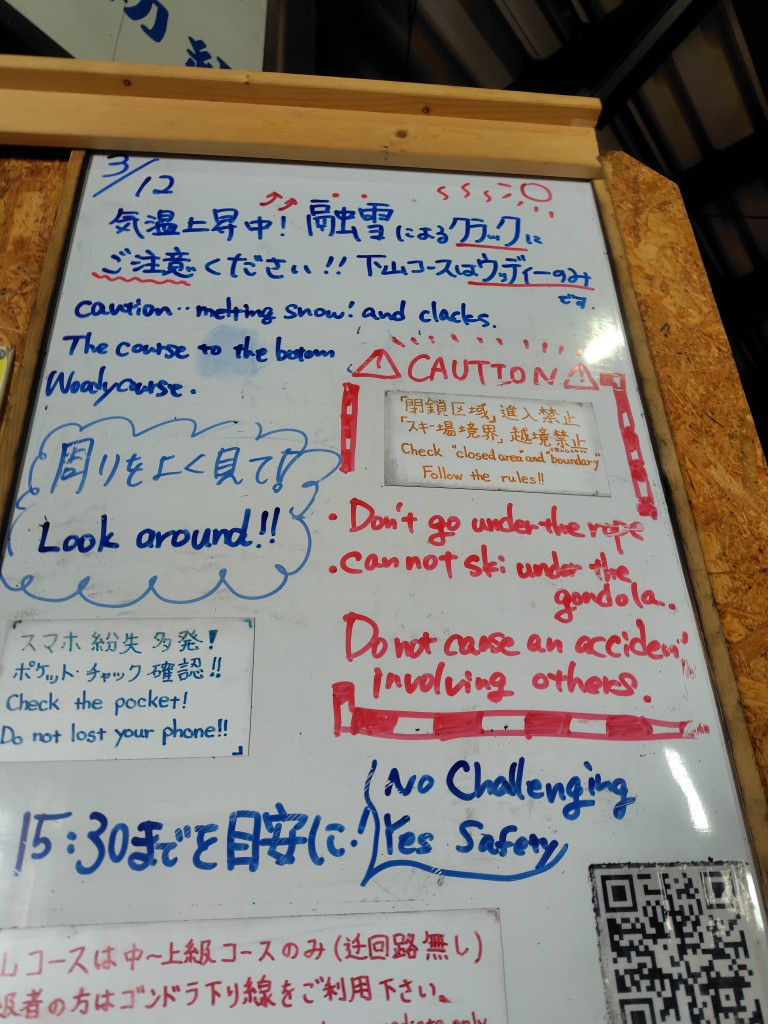 3/12
気温上昇中! 融雪によるクラックに
ご注意ください!! 下山コースはウッディーのみ
です.
caution.. melting snow! and clacks.
The course to the botom
Woodycourse.
周りをよく見て!
Look around!!
CAUTION
「閉鎖区域」進入禁止
「スキー場境界」越境禁止
Check "closed area" and "boundary"
Follow the rules!!
・Don't go under the rope
・cannot ski under the
gondola.
Do not cause an acciden
involving others.
スマホ紛失多発!
ポケット・チャック確認!!
Check the pocket!
Do not lost your phone!!
15:30までを目安に!
No Challenging
Yes Safety
山コースは中~上級コースのみ(迂回路無し)
級者の方はゴンドラ下り線をご利用下さい。
only